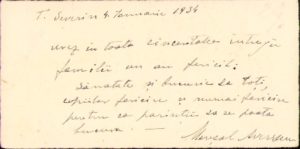 T. Severin 4 Ianuarie 1934
urez cu toata sinceritatea întregei
familii un an fericit;
sanatate și bucurie la toți,
copiilor fericire și numai fericire
pentru ca parintii sa se poata
bucura. —